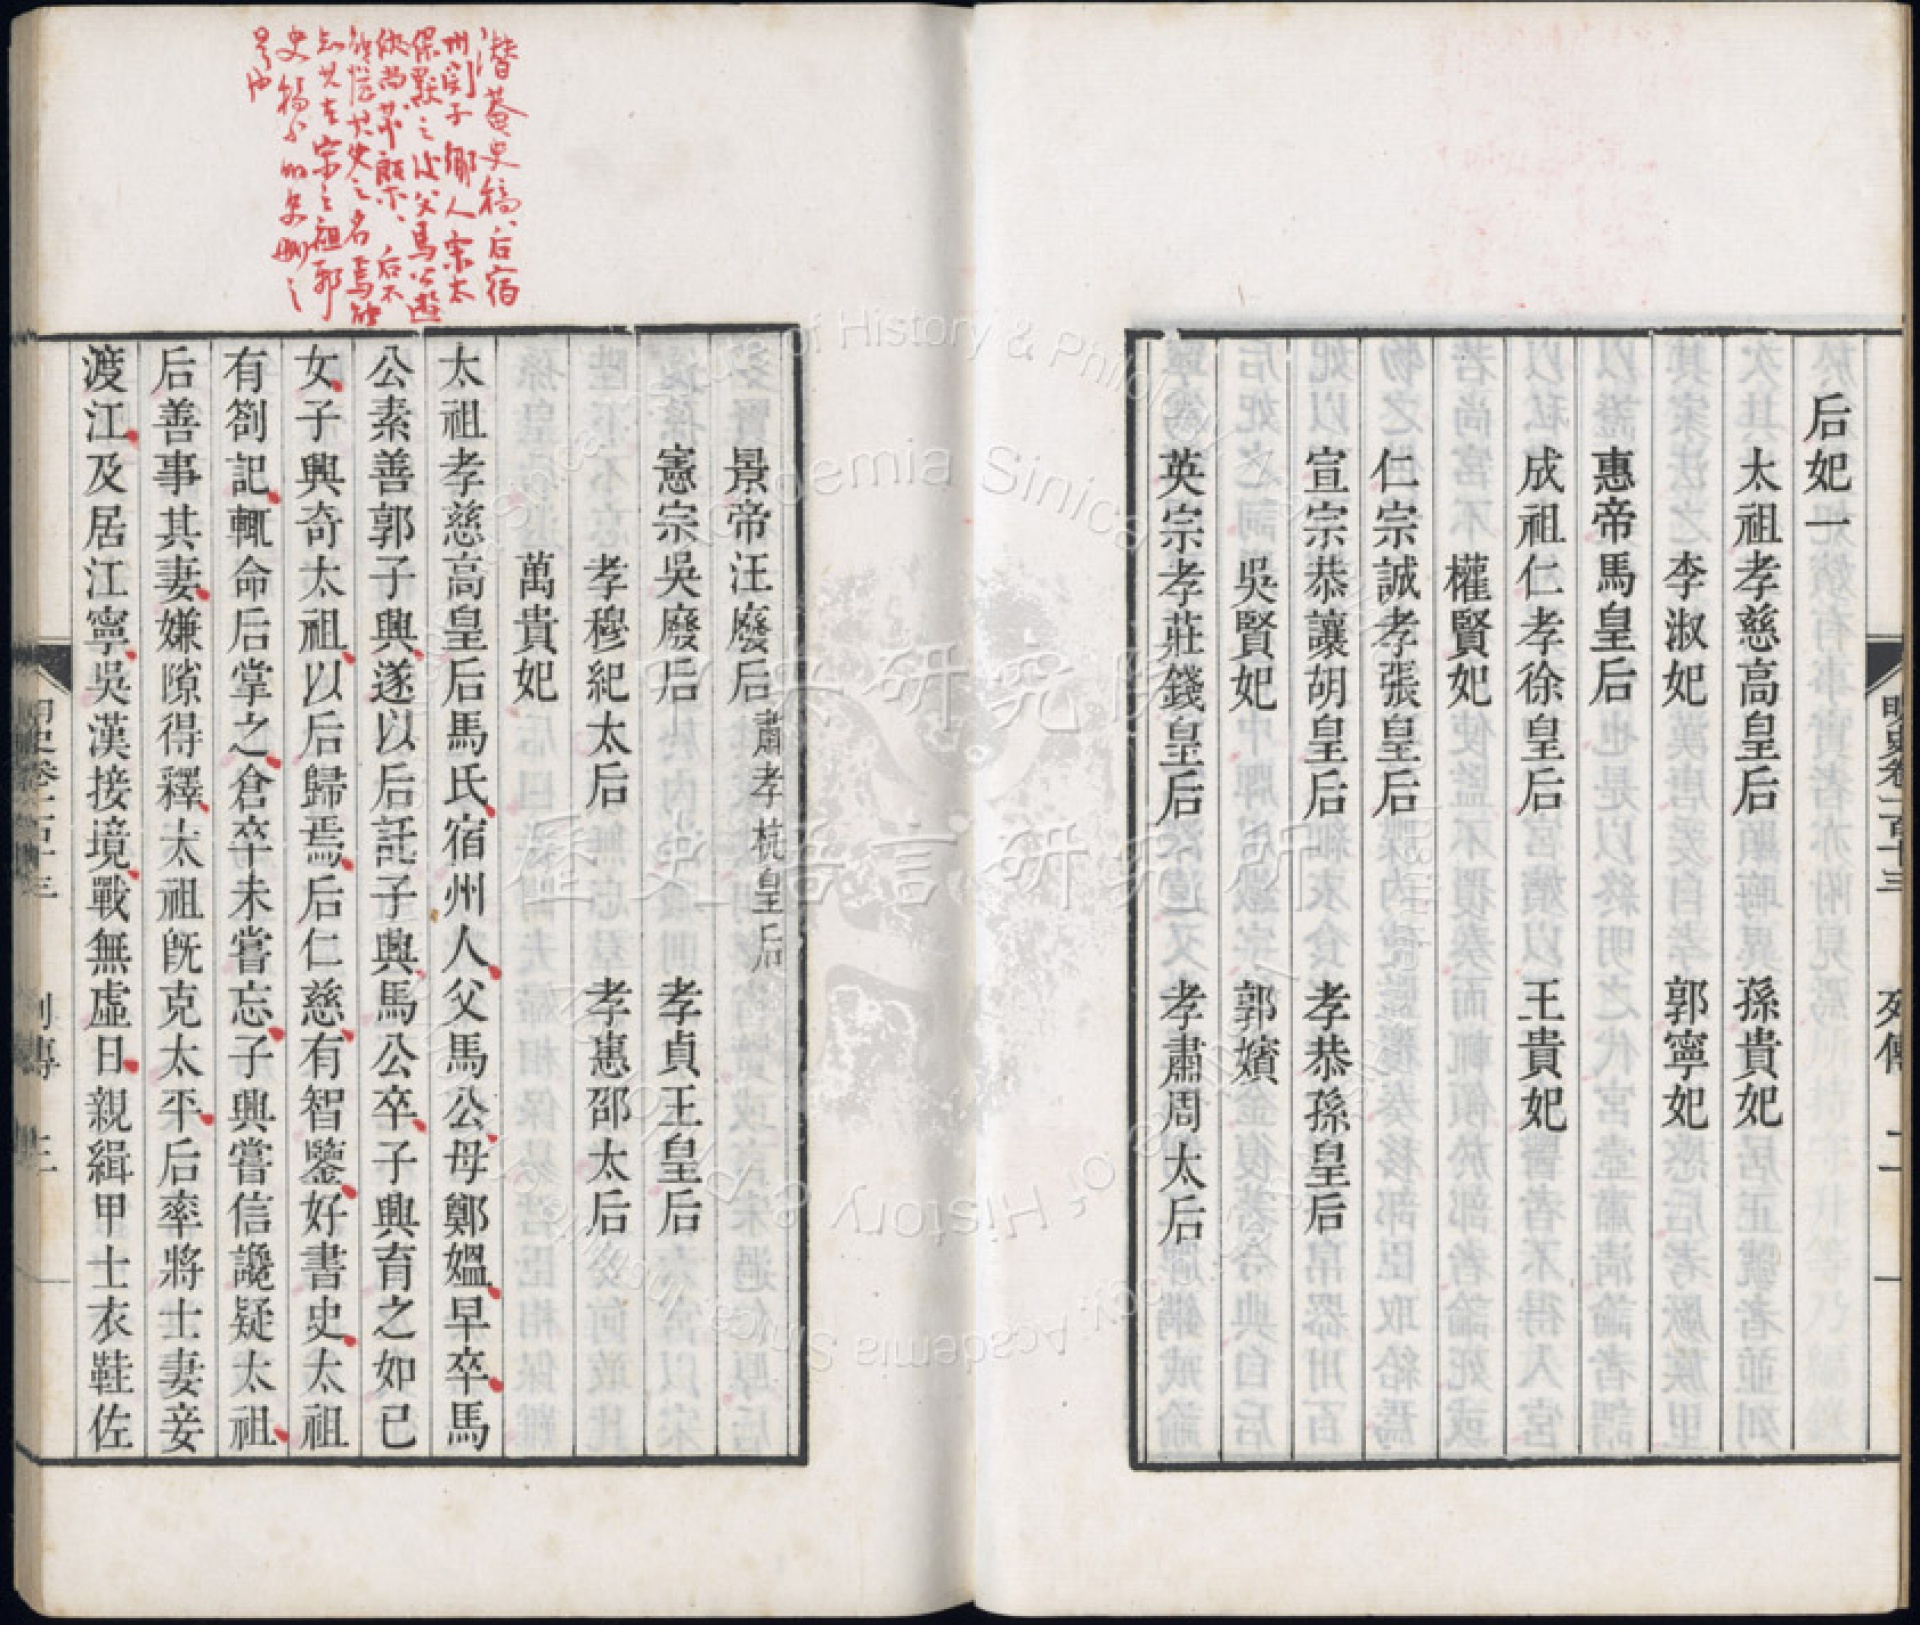 后妃一
太祖孝慈高皇后 孫貴妃
李淑妃 郭寧妃
惠帝馬皇后
成祖仁孝徐皇后 王貴妃
權賢妃
仁宗誠孝張皇后
宣宗恭讓胡皇后 孝恭孫皇后
吳賢妃 郭嬪
英宗孝莊錢皇后 孝肅周太后
明史卷一百十三 列傳 二 一
景帝汪廢后 肅孝杭皇后
憲宗吳廢后 孝貞王皇后
孝穆紀太后 孝惠邵太后
萬貴妃
太祖孝慈高皇后馬氏宿州人父馬公母鄭媼早卒馬
公素善郭子興遂以后託子興馬公卒子興育之如己
女子興奇太祖以后歸焉后仁慈有智鑒好書史太祖
有劄記輒命后掌之倉卒未嘗忘子興嘗信讒疑太祖
后善事其妻嫌隙得釋太祖旣克太平后率將士妻妾
渡江及居江寧吳漢接境戰無虛日親緝甲士衣鞋佐
列傳 三
潛菴史稿、后宿
州閔子鄉人宋太
保默之後父馬公
后不
之名焉
知其在宋之祖耶
史稿 明史刪之
是也
歷史語言研究所
Academia Sinica
of History & Philo